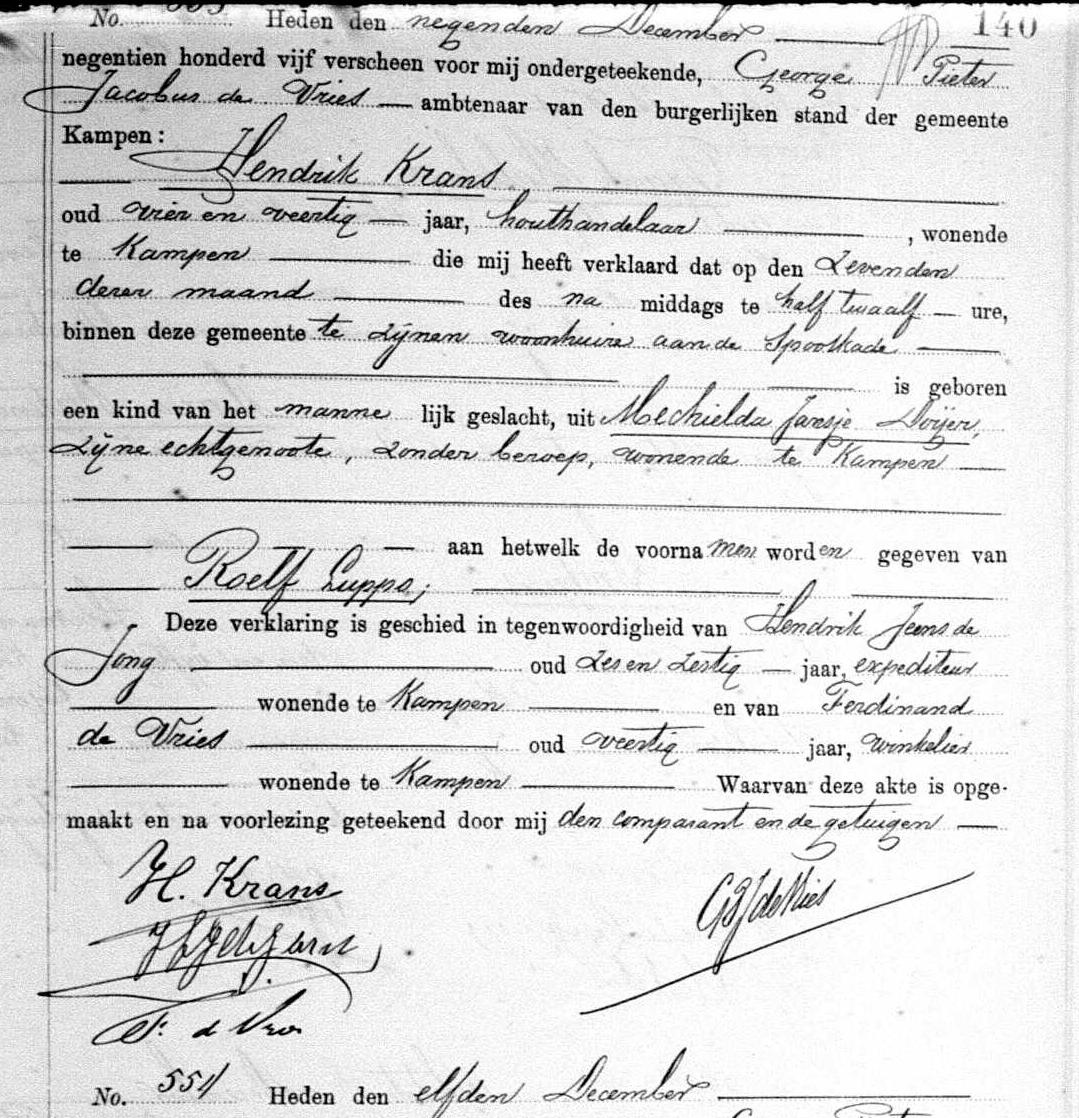 No. 553 Heden den negenden December 140
negentien honderd vijf verscheen voor mij ondergeteekende, George Pieter
Jacobus de Vries ambtenaar van den burgerlijken stand der gemeente
Kampen:
Hendrik Krans
oud vier en veertig jaar, houthandelaar, wonende
te Kampen die mij heeft verklaard dat op den Zevenden
dezer maand des na middags te half twaalf ure,
binnen deze gemeente te zijnen woonhuize aan de
is geboren
een kind van het manne lijk geslacht, uit Mechielda Jansje Doijer,
zijne echtgenoote, zonder beroep, wonende te Kampen
aan hetwelk de voorna men word en gegeven van
Roelf Luppo;
Deze verklaring is geschied in tegenwoordigheid van Hendrik Jeens de
Jong oud zes en zestig jaar, expediteur
wonende te Kampen en van Ferdinand
de Vries oud veertig jaar, winkelier
wonende te Kampen Waarvan deze akte is opge-
maakt en na voorlezing geteekend door mij den comparant en de getuigen
H. Krans
GPJ de Vries
F. de Vries
No. 554 Heden den elfden December